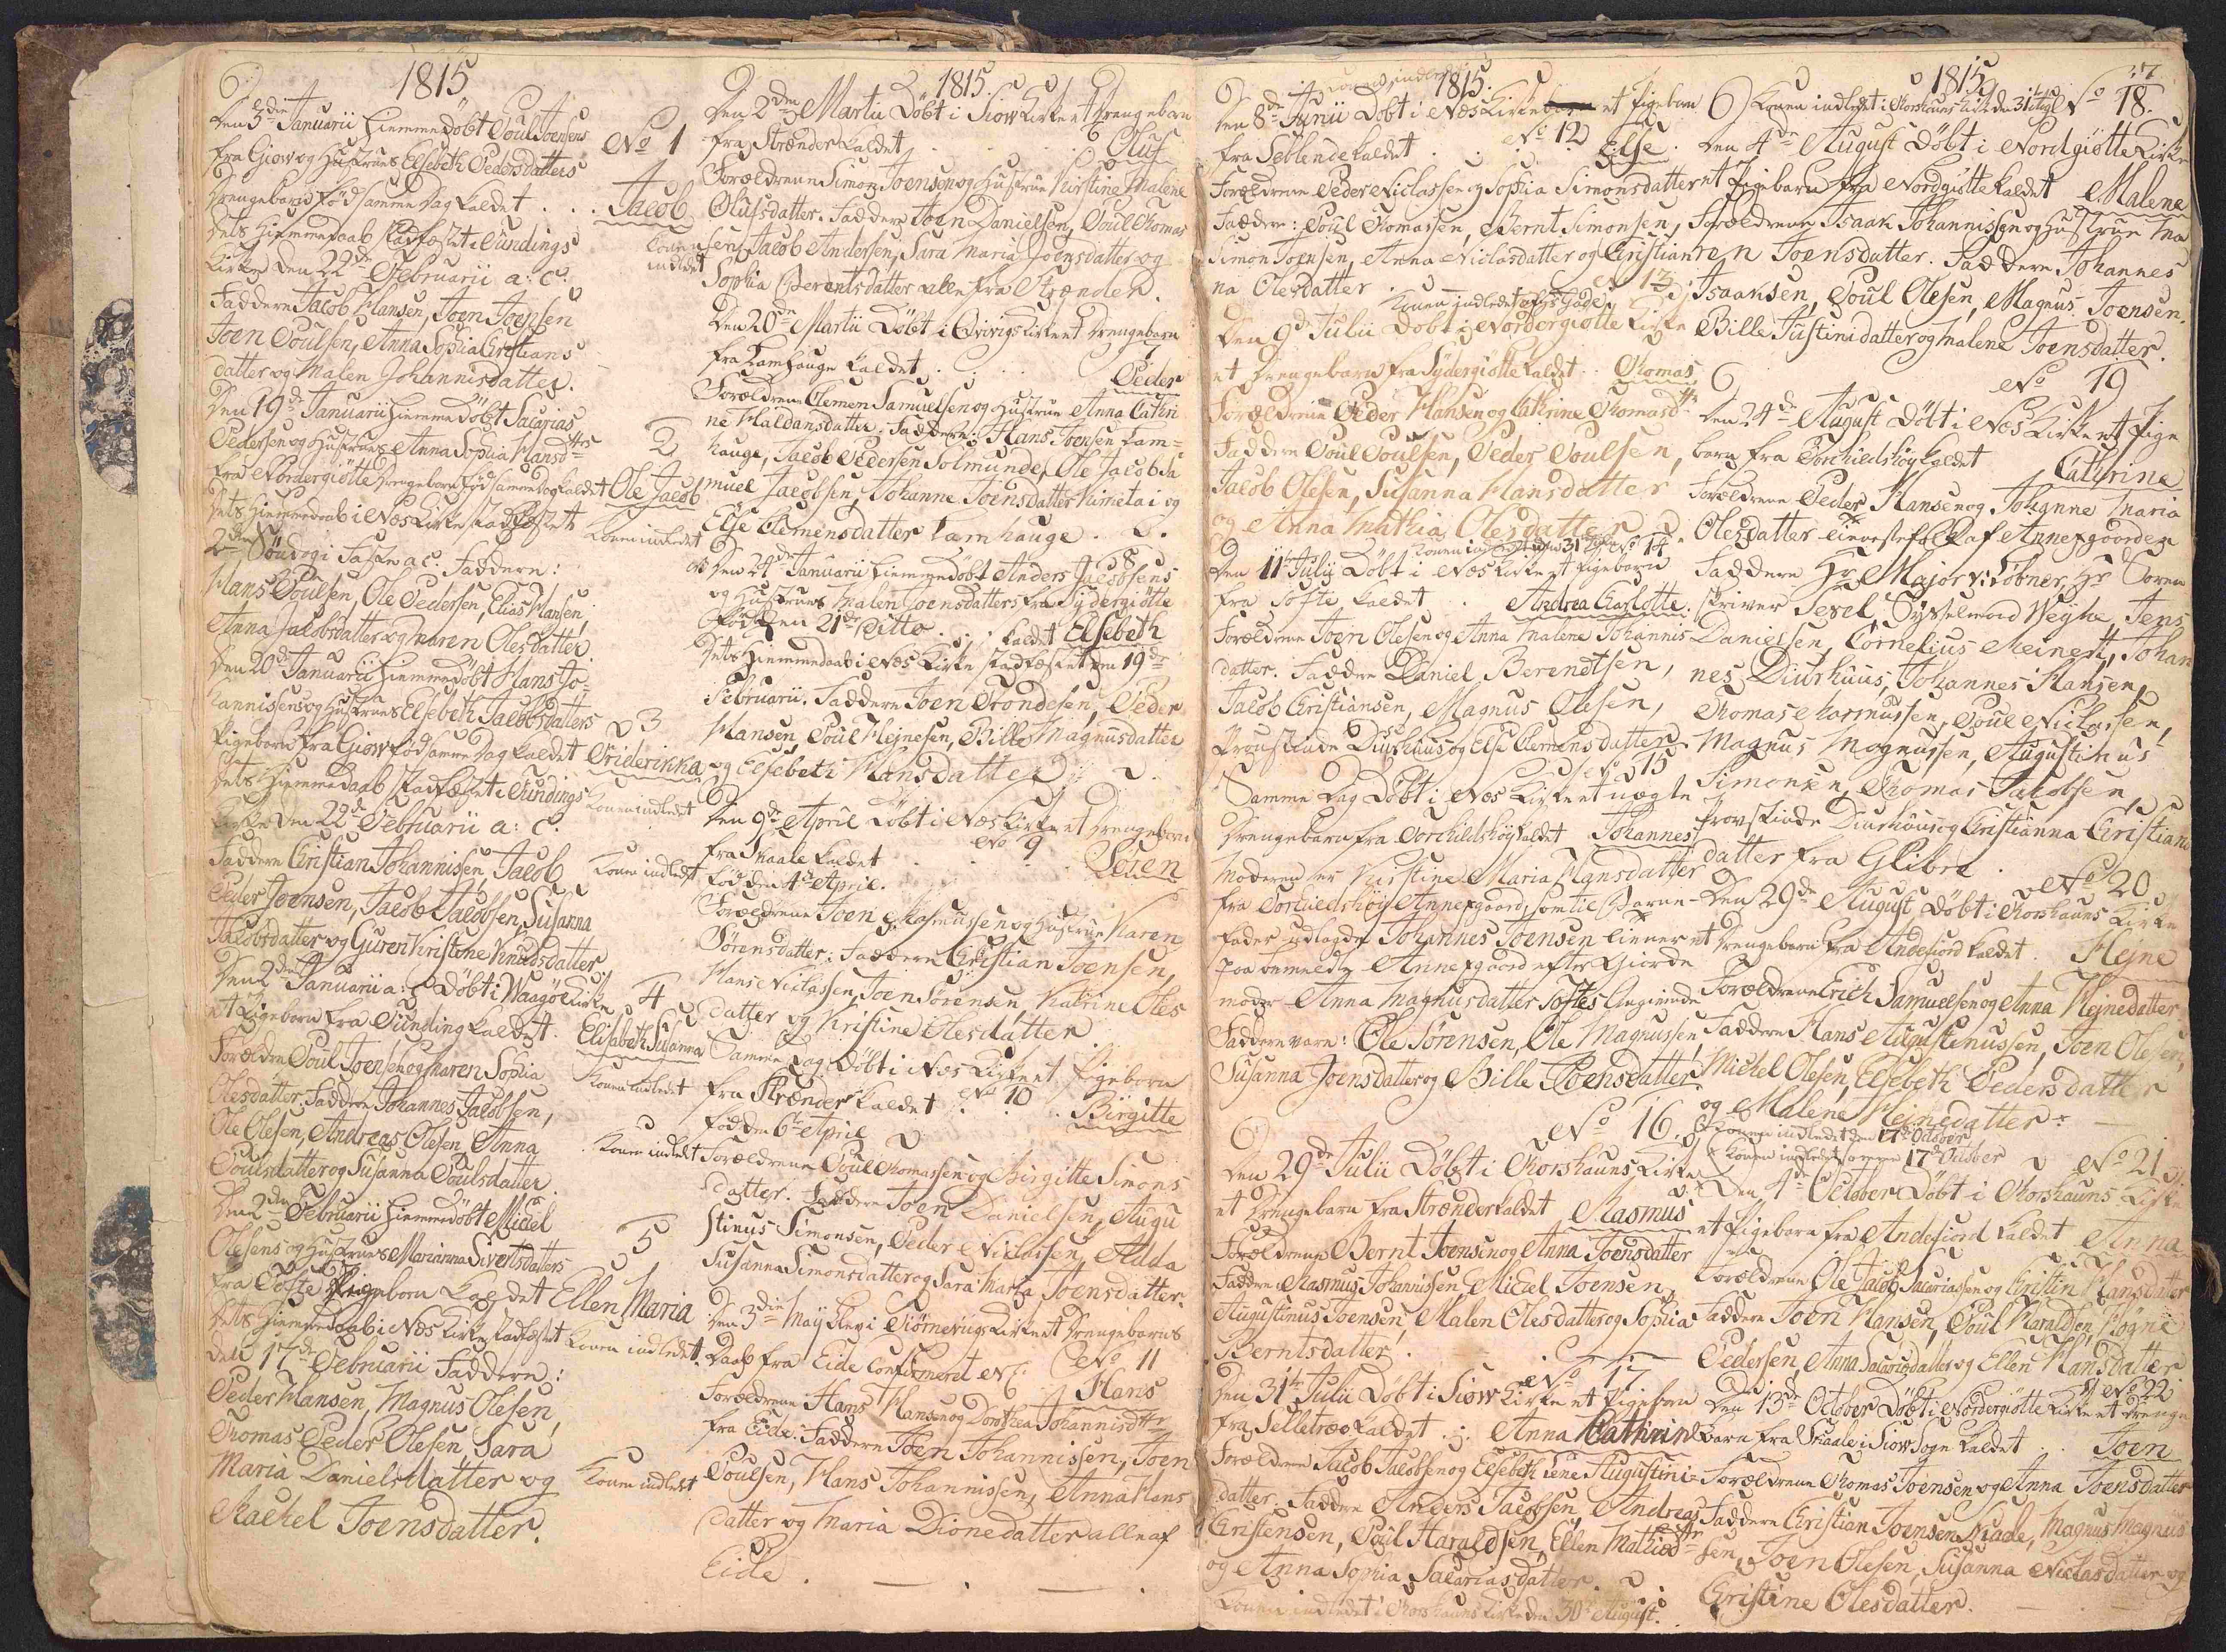 1815
Den 3de Januarii hiemmedöbt Poul Joensens
fra Giow og Hustrues Elsebeth Pedersdatters
Drengebarn född samme Dag kaldet . . . Jacob
No 1
dets Hiemmedaab stadfæstet i Fundings
Kirke den 22de Februarii a: c:
Konen indledt
Faddere Jacob Hansen, Joen Joensen
Joen Poulsen, Anna Sophia Christians
datter og Malen Johannisdatter.
Den 19de Januarii hiemmedöbt Sacarias
Pedersen og Hustrues Anna Sophia Hansdtrs
2
fra Nordergiötte Drengebarn född samme Dag kaldet Ole Jacob
dets Hiemmedaab i Næs Kirke stadfæstet
Konen indledet
2den Söndag i Faste a: c: Faddere:
Hans Poulsen, Ole Pedersen, Elias Hansen,
Anna Jacobsdatter og Maren Olesdatter
Den 20de Januarii hiemmedöbt Hans Jo-
hannisens og Hustrues Elsebeth Jacobsdatters
3
Pigebarn fra Giow född samme Dag kaldet Friderikka
dets Hiemmedaab stadfæstet i Fundings
Konen indledt
Kirke den 22de Februarii a: c:
Faddere Christian Johannisen, Jacob
Konen indledt
Peder Joensen, Jacob Jacobsen, Susanna
Jacobsdatter og Guren Kristine Knudsdatter
Den 2den Januarii a: c döbt i Waagöe Kirke 4
et Pigebarn fra Funding kaldet. Elisabeth Susanna
Forældre Poul Joensen og Maren Sophia
Konen indledt
Olesdatter. Faddere Johannes Jacobsen,
Ole Olesen, Andreas Olesen, Anna
Konen indledt
Poulsdatter og Susanna Poulsdatter
Den 2den Februarii hiemmedöbt Michel
Olesens og Hustrues Marianna Sivertsdatters
5
fra Tofte Pigebarn kaldet Ellen Maria
dets Hiemmedaab i Næs Kirke stadfæstet
Konen indledet
den 17de Februarii Faddere:
Peder Hansen, Magnus Olesen,
Thomas Peder Olesen, Sara
Maria Danielsdatter og
Konen indledt
Rachel Joensdatter.
1815
Den 2den Martii Döbt i Siow Kirke et Drengebarn
fra Strænder kaldet . . . Oluf
Forældrene Simon Joensen og Hustrue Kirstine Malene
Olufsdatter. Faddere Joen Danielsen, Poul Thomas
sen, Jacob Andersen, Sara Maria Joensdatter og
Sophia Berentsdatter alle fra Strænder.
Den 20de Martii Döbt i Qvivigs Kirke et Drengebarn
7
fra Lamhauge kaldet . . . Peder
Forældrene Clemen Samuelsen og Hustrue Anna Cathri
ne Haldansdatter. Faddere: Hans Joensen Lam=
hauge, Jacob Pedersen Solmunde, Ole Jacob Sa
muel Jacobsen, Johanne Joensdatter og
Else Clemensdatter Lamhauge.
8
Den 24de Januarii hiemmedöbt Anders Jacobsens
og Hustrues Malen Joensdatters fra Sydergiötte
född den 21de ditto . . kaldet Elsebeth
dets Hiemmedaab i Næs Kirke stadfæstet den 19de
Februarii. Faddere Joen Trondesen, Peder
Hansen, Poul Hejnesen, Bille Magnusdatter
og Elsebeth Hansdatter
Den 9de April Döbt i Næs Kirke et Drengebarn
No 9
fra Skaale kaldet . . . Joen
föd den 4de April.
Forældrene Joen Rasmussen og Hustrue Karen
Sörensdatter. Faddere Christian Joensen,
Hans Niclassen, Joen Sörensen Katrine Oles
datter og Kristine Olesdatter
Samme Dag Döbt i Næs Kirke et Pigebarn
No 10
fra Strænder kaldet . . . Birgitte
föd den 6te April
Forældrene Poul Thomassen og Birgitte Simons
datter. Faddere Joen Danielsen, Augu
stinus Simonsen, Peder Niclassen, Adda
Susanna Simonsdatter og Sara Maria Joensdatter.
Den 3die May blev i Tiörnevigs Kirke et Drengebarns
Daab fra Eide Confirmeret No 11
Hans
Forældrene Hans Hansen og Dorthea Johannisdtr
fra Eide. Faddere Joen Johannissen, Joen
Poulsen, Hans Johannissen, Anna Hans
datter og Maria Dionedatter alle af
Eide . — . — .
1815.
Den 8de Junii Döbt i Næs Kirke et Pigebarn
No 12
fra Sellende kaldet . . . Else
Forældrene Peder Niclassen og Sophia Simonsdatter
Faddere: Poul Thomassen, Bernt Simonsen,
Simon Joensen, Anna Niclasdatter og Christian
na Olesdatter . . . 13
Den 9de Julii Döbt i Nordergiötte Kirke
et Drengebarn fra Sydergiötte kaldet . . Thomas
Forældrene Peder Hansen og Cathrine Thomasdtr
Faddere Poul Poulsen, Peder Poulsen,
Jacob Olesen, Susanna Hansdatter
og Anna Mathia Olesdatter
Konen indledt den 31 No 14
Den 11te Julii Döbt i Næs Kirke et Pigebarn
fra Tofte kaldet . . Andrea Charlotte.
Forældrene Joen Olesen og Anna Malene Johannis-
datter. Faddere Daniel Berendtsen,
Jacob Christiansen, Magnus Olesen,
Provstinde Diurhuus og Else Clemensdatter
No 15
Samme Dag Döbt i Næs Kirke et uægte
Drengebarn fra Torkildshöy kaldet Johannes
Moderen er Kirstine Maria Hansdatter
fra Torkieldshöy Annexgaard, som til Barne-
fader udlagde Johannes Joensen tienner
paa bemeldte Annexgaard efter Giorde
moder Anna Magnusdatter Toftes Angivende
Faddere vare: Ole Sörensen, Ole Magnussen,
Susanna Joensdatter og Bille Poulsdatter
No 16.
Den 29de Julii Döbt i Thorshauns Kirke
et Drengebarn fra Strænder kaldet Rasmus
Forældrene Bernt Joensen og Anna Joensdatter
Faddere Rasmus Johannissen, Michel Joensen,
Augustinus Joensen, Malen Olesdatter og Sophia
Berntsdatter . . .
No 17
Den 31te Julii Döbt i Siow Kirke et Pigebarn
fra Selletræ kaldet . . . Anna Cathrin
Forældrene Jacob Jacobsen og Elsebeth Lene Augustini=
datter. Faddere Anders Jacobsen, Andreas
Christensen, Poul Haraldsen, Ellen Mathiasdtr
og Anna Sophia Sacariasdatter.
Konen indledet i Thorshauns Kirke den 30te August.
1815
17
Konen indledt i Thorshauns Kirke den 31te Aug. No 18.
Den 4de August Döbt i Nordgiötte Kirke
et Pigebarn fra Nordgiötte kaldet Malene
Forældrene Isaak Johannissen og Hustrue Ma
ren Joensdatter. Faddere Johannes
Isaaksen, Poul Olesen, Magnus Joensen,
Bille Justinidatter og Malene Joensdatter.
No 19
Den 24de August Döbt i Næs Kirke et Pige
barn fra Torkieldshöy kaldet Cathrine
Forældrene Peder Hansen og Johanne Maria
Olesdatter tienestefolk af Annexgaarden
Faddere Hr Major v: Löbner, Hr Soren
skriver Sexel, Sysselmand Weyhe, Jens
Danielsen, Cornelius Meinert, Johan
nes Diurhuus, Johannes Hansen,
Thomas Rasmussen, Poul Niclassen,
Magnus Magnussen, Augustinus
Simonsen, Thomas Jacobsen,
Provstinde Diurhuus og Christianna Christians
datter fra Glibre
No 20
Den 29de August döbt i Thorshauns Kirke
et Drengebarn fra Andefiord kaldet . Hejne
Forældrene Erich Samuelsen og Anna Hejnedatter
Faddere Hans Augustinussen, Joen Olesen,
Michel Olesen, Elsebeth Pedersdatter
og Malene Hejnedatter
Konen indledt den 17de October
Konen indledt samme 17de October No 21
Den 4de October Döbt i Thorshauns Kirke
et Pigebarn fra Andefiord kaldet Anna
Forældrene Ole Jacob Sacariassen og Christin Hansdatter
Faddere Joen Hansen, Poul Haraldsen, Högni
Pedersen, Anna Sacariasdatter og Ellen Hansdatter
No 22
Den 13de October Döbt i Nordergiötte Kirke et Drenge
barn fra Skaale i Siow Sogn kaldet . . Joen
Forældrene Thomas Joensen og Anna Joensdatter
Faddere Christian Joensen Skaale, Magnus Magnus
sen, Joen Olesen, Susanna Niclasdatter og
Christine Olesdatter.